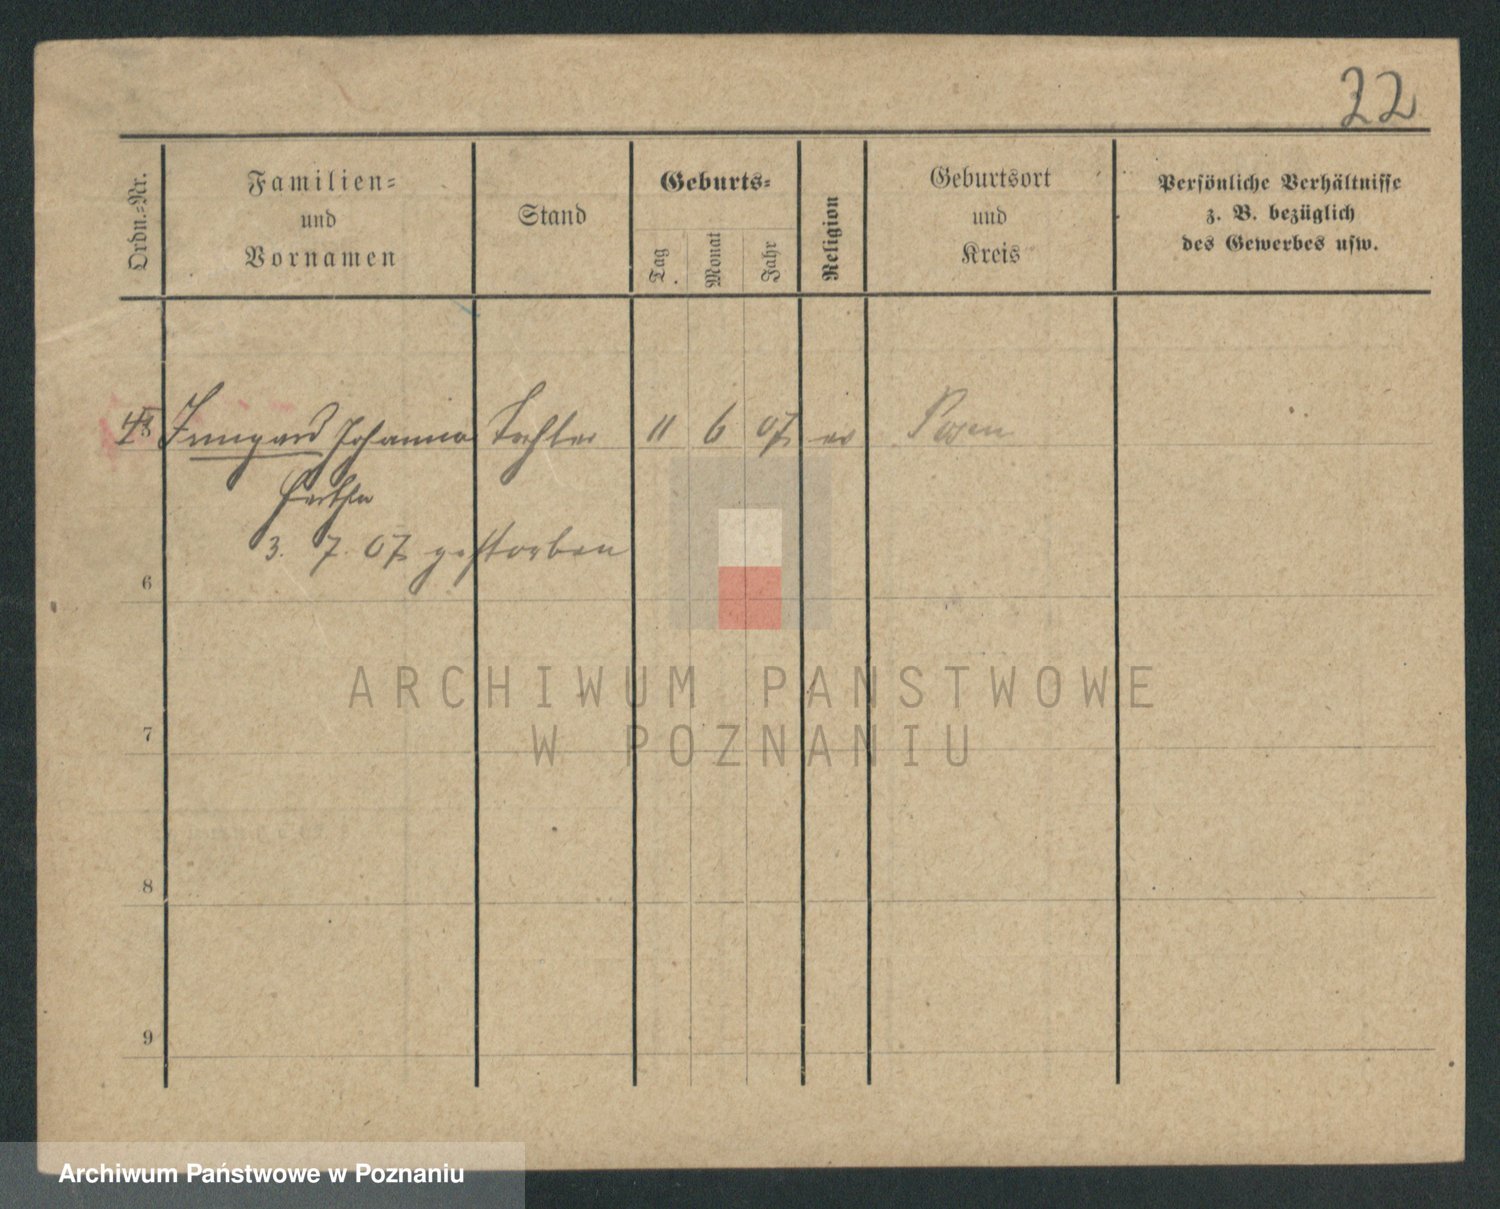 22
Ordn.-Nr.
Familien-
und
Vornamen
Stand
Geburts-
Tag
Monat
Jahr
Religion
Geburtsort
und
Kreis
Persönliche Verhältnisse
z. B. bezüglich
des Gewerbes usw.
Irmgard Johanna Tochter 11 6 07 ev Posen
Hertha
3. 7. 07 gestorben
6
ARCHIWUM PANSTWOWE
W POZNANIU
7
8
9
Archiwum Państwowe w Poznaniu